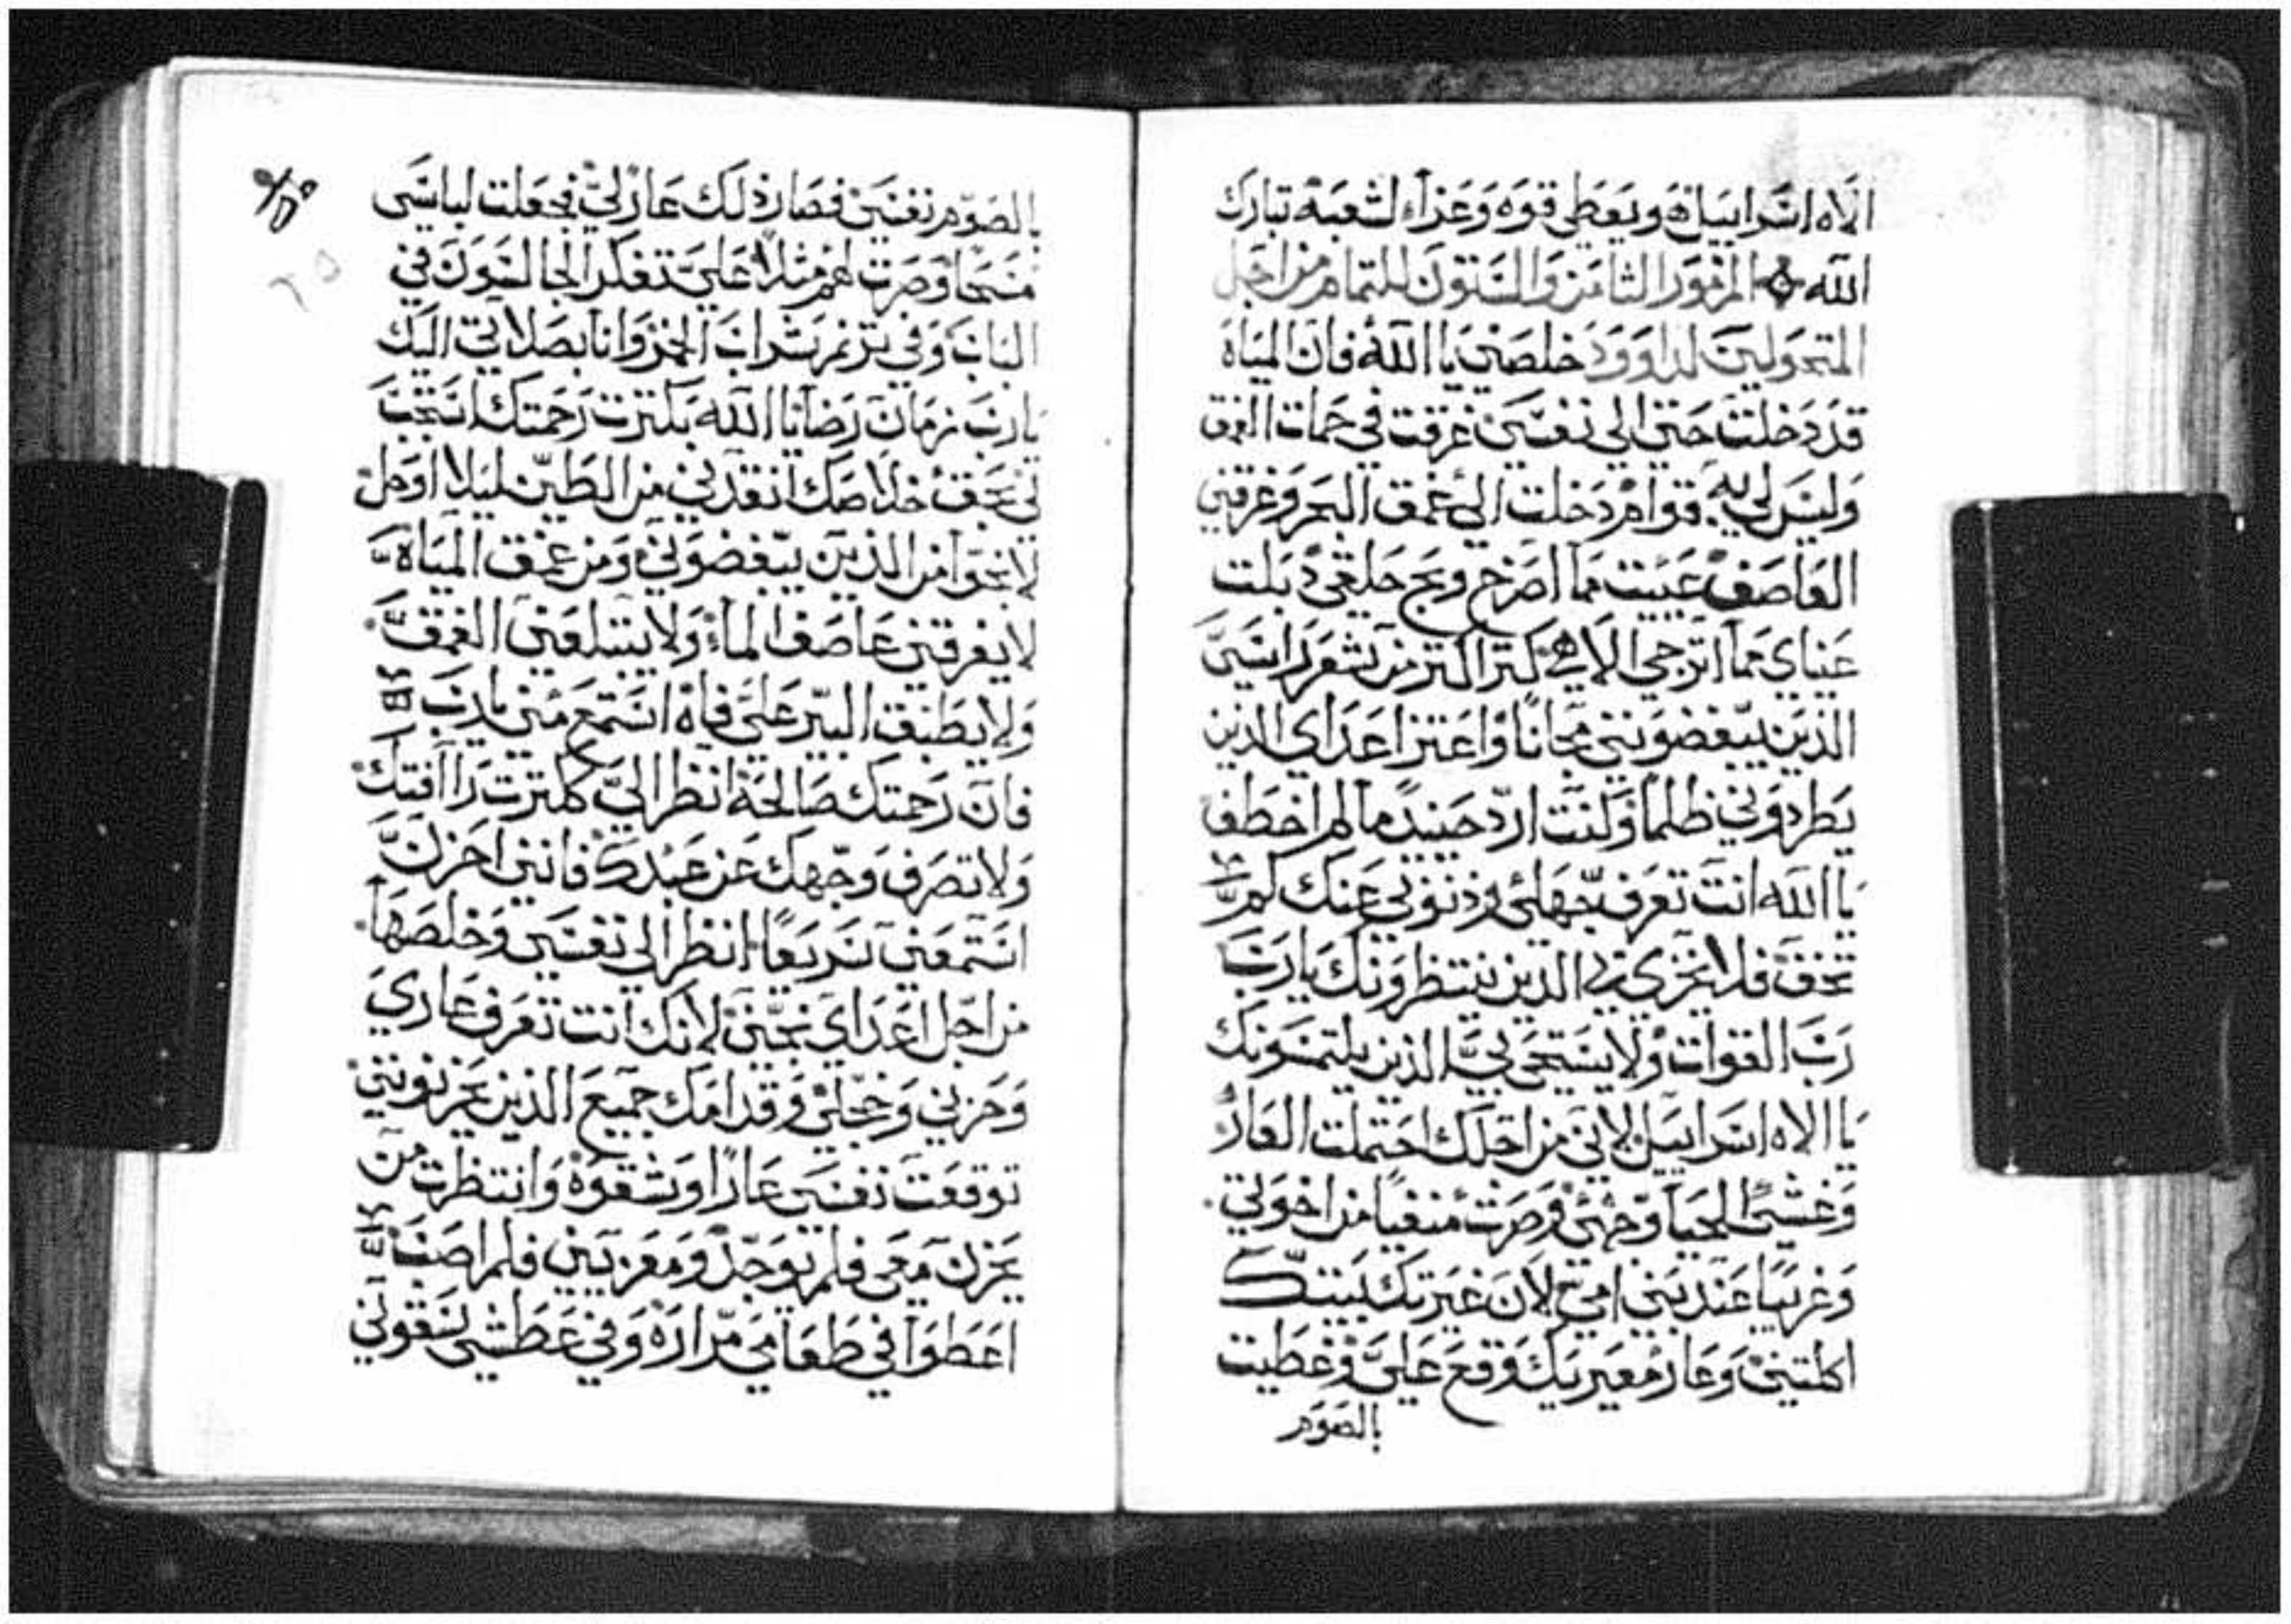 الاه اسراييل هو يعطي قوه وعزاء لشعبه تبارك
الله المزمور الثامن والستون للتمام من اجل
المتحولين لداوود خلصني يا الله فان المياه
قد دخلت حتى الى نفسي غرقت في حمات العمق
وليس لي به قوام دخلت الى عمق البحر وغرقني
العاصف عييت مما اصرخ وبح حلقي ذبلت
عيناي مما اترجى الاهي كثر اكثر من شعر راسي
الذين يبغضونني مجانا واعتز اعداي الذين
يطردوني ظلما وكنت ارد حينيد ما لم اخطف
يا الله انت تعرف جهلي وذنوبي عنك لم
تخف فلا يخزى بي الذين ينتظرونك يا رب
رب القوات ولا يستحي بي الذين يلتمسونك
يا الاه اسراييل لاني من اجلك احتملت العار
وغشى الحيا وجهي وصرت منفيا من اخوتي
وغريبا عند بني امي لان غيرتك بيتك
اكلتني وعار معيريك وقع علي وغطيت
بالصوم
بالصوم نفسي فصار ذلك عار لي فجعلت لباسي
مسحا وصرت لهم مثلا علي تفكر الجالسون في
الباب وفي ترنم شراب الخمر وانا بصلاتي اليك
يا رب زمان رضا يا الله بكثرت رحمتك استجب
لي بحق خلاصك انقدني من الطين ليلا اوحل
لانجوا من الذين يبغضوني ومن عمق المياه
لا يغرقني عاصف الماء ولا يبتلعني العمق
ولا يطبق البير علي فاه استمع مني يا رب
فان رحمتك صالحة انظر الي ككثرت راافتك
ولا تصرف وجهك عن عبدك فانني احزن
استمعني سريعا انظر الى نفسي وخلصها
من اجل اعداي نجني لانك انت تعرف عاري
وحزني وخجلي وقدامك جميع الذين يحزنونني
توقعت نفسي عارا وشقوة وانتظرت من
يحزن معي فلم يوجد ومعزيين فلم اصب
اعطوا في طعامي مرارة وفي عطشي يسقوني